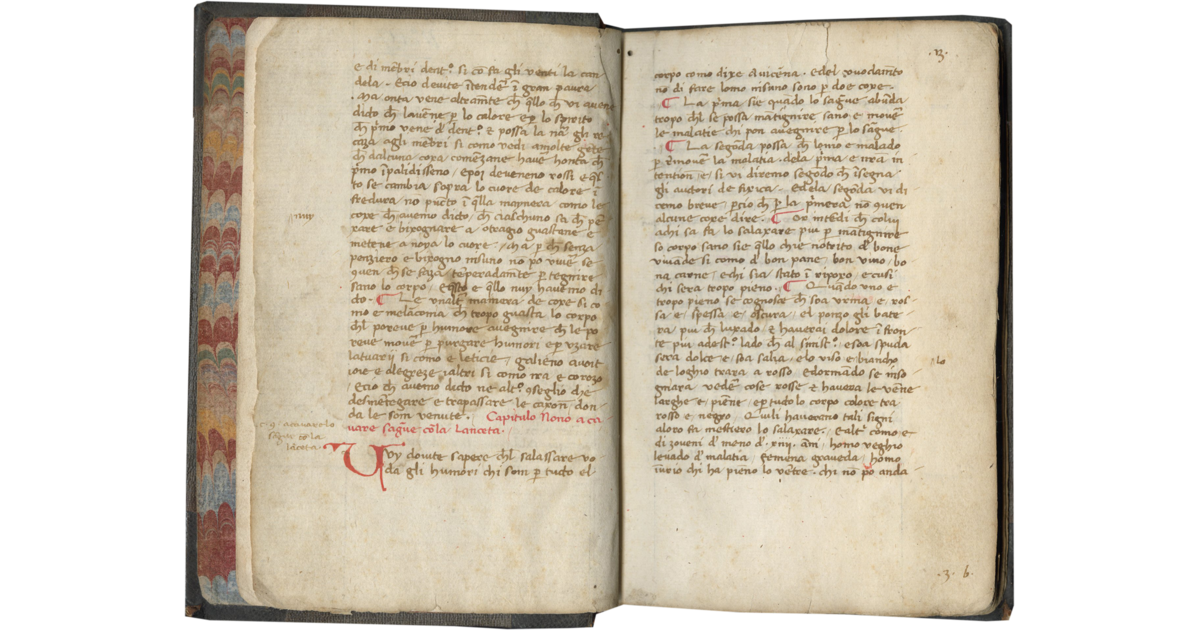 e di mēbri dent.° si cō fa gli venti la can
dela. Ecio devite ītendē ī gran paura
Ma onta vene altramte ch q̄llo ch vi avene
dicto ch lavēne p lo calore e lo spirito
ch pīmo vene d' dent.° e possa la nā gli re
caza agli mēbri si como vedi amolte gēte
ch dalcuna coxa comēzano have honta ch
pīmo īpalidisseno / Epoi deveneno rossi e q̄
to se cambia sopra lo cuore de calore ī
fredura no pūcto ī q̄lla mayneca como le
nuy
coxe ch avemo dicto / ch cialchuno sa ch pē
xare e bixognare a otragio guastano e
metene a noya lo cuore / ch a p ch senza
penziero e bixogno nisuno no po vivē se
quen ch se faza tēperadamte p tegnire
sano lo corpo / Et q̄llo nuy havemo di
cto. Le vnalt' maniera de coxe si co
mo e melāconia ch tropo guasta lo corpo
chl poreve p humore avegnire ch le po
reve movē p purgare humori e p vzare
latuarii si como e leticie / galieno
ioie e alegreze / altri si como ira e corozo
Ecio ch avemo dicto ne alt.° 9seglio che
desmetegare e trapassare le caxon / don
da le som venute. Capitulo Nono a ca
vare sagūe cōla Lanceta.
9° a cavare lo
sagūe cō la
lāceta.
Uvy dovite sapere chl salassare vo
da gli humori chi som p tucto el
.13.
corpo como dixe avicēna. Edel
no di fare lomo nisuno sono p doe coxe.
La pīma sie quādo lo sagūe abūda
tropo chl se possa mātignire sano e movē
le malatie chi pon avegnire p lo sagūe.
La segōda possa ch lomo e malado
p rimovē la malatia. dela pīma e mia in
tention / e / si vi diremo segōdo ch īsegna
gli autori de fixica. Edela segōda vi di
remo breve / pcio ch p la pīmera no quen
alcune coxe dire. Or ītēdi ch colui
achi sa fa lo salaxare piu p mātignire
so corpo sano sie q̄llo chie notrito d' bone
viande si como d' bon pane / bon vino / bo
na carne / e chi sia stato ī ripoxo / e cusi
chi sera tropo pieno. Quādo uno e
tropo pieno se cognosce ch soa urina e / ros
sa e / spessa e / oscura / el ponzo gli bate
ra piu ch luxado / E haverai dolore ī fron
te piu adest.° lado ch al sinist.° / e soa spuda
lo
sera dolce e / soa salia / e lo viso e biancho
de loghio trara a rosso / Edormādo se inso
gniara vedē cose rosse / E havera le vēne
larghe e piēne / e p tudo lo corpo colore tra
rosso e / negro / Quili haverano tali signi
aloro fa mestiero lo salaxare. Ealt' como e
di zoveni d' meno d' .xiii. ani / homo veghio
levado d' malatia / Femena graveda / homo
chi ha pieno lo vētre. chi nō po anda
.3. b.